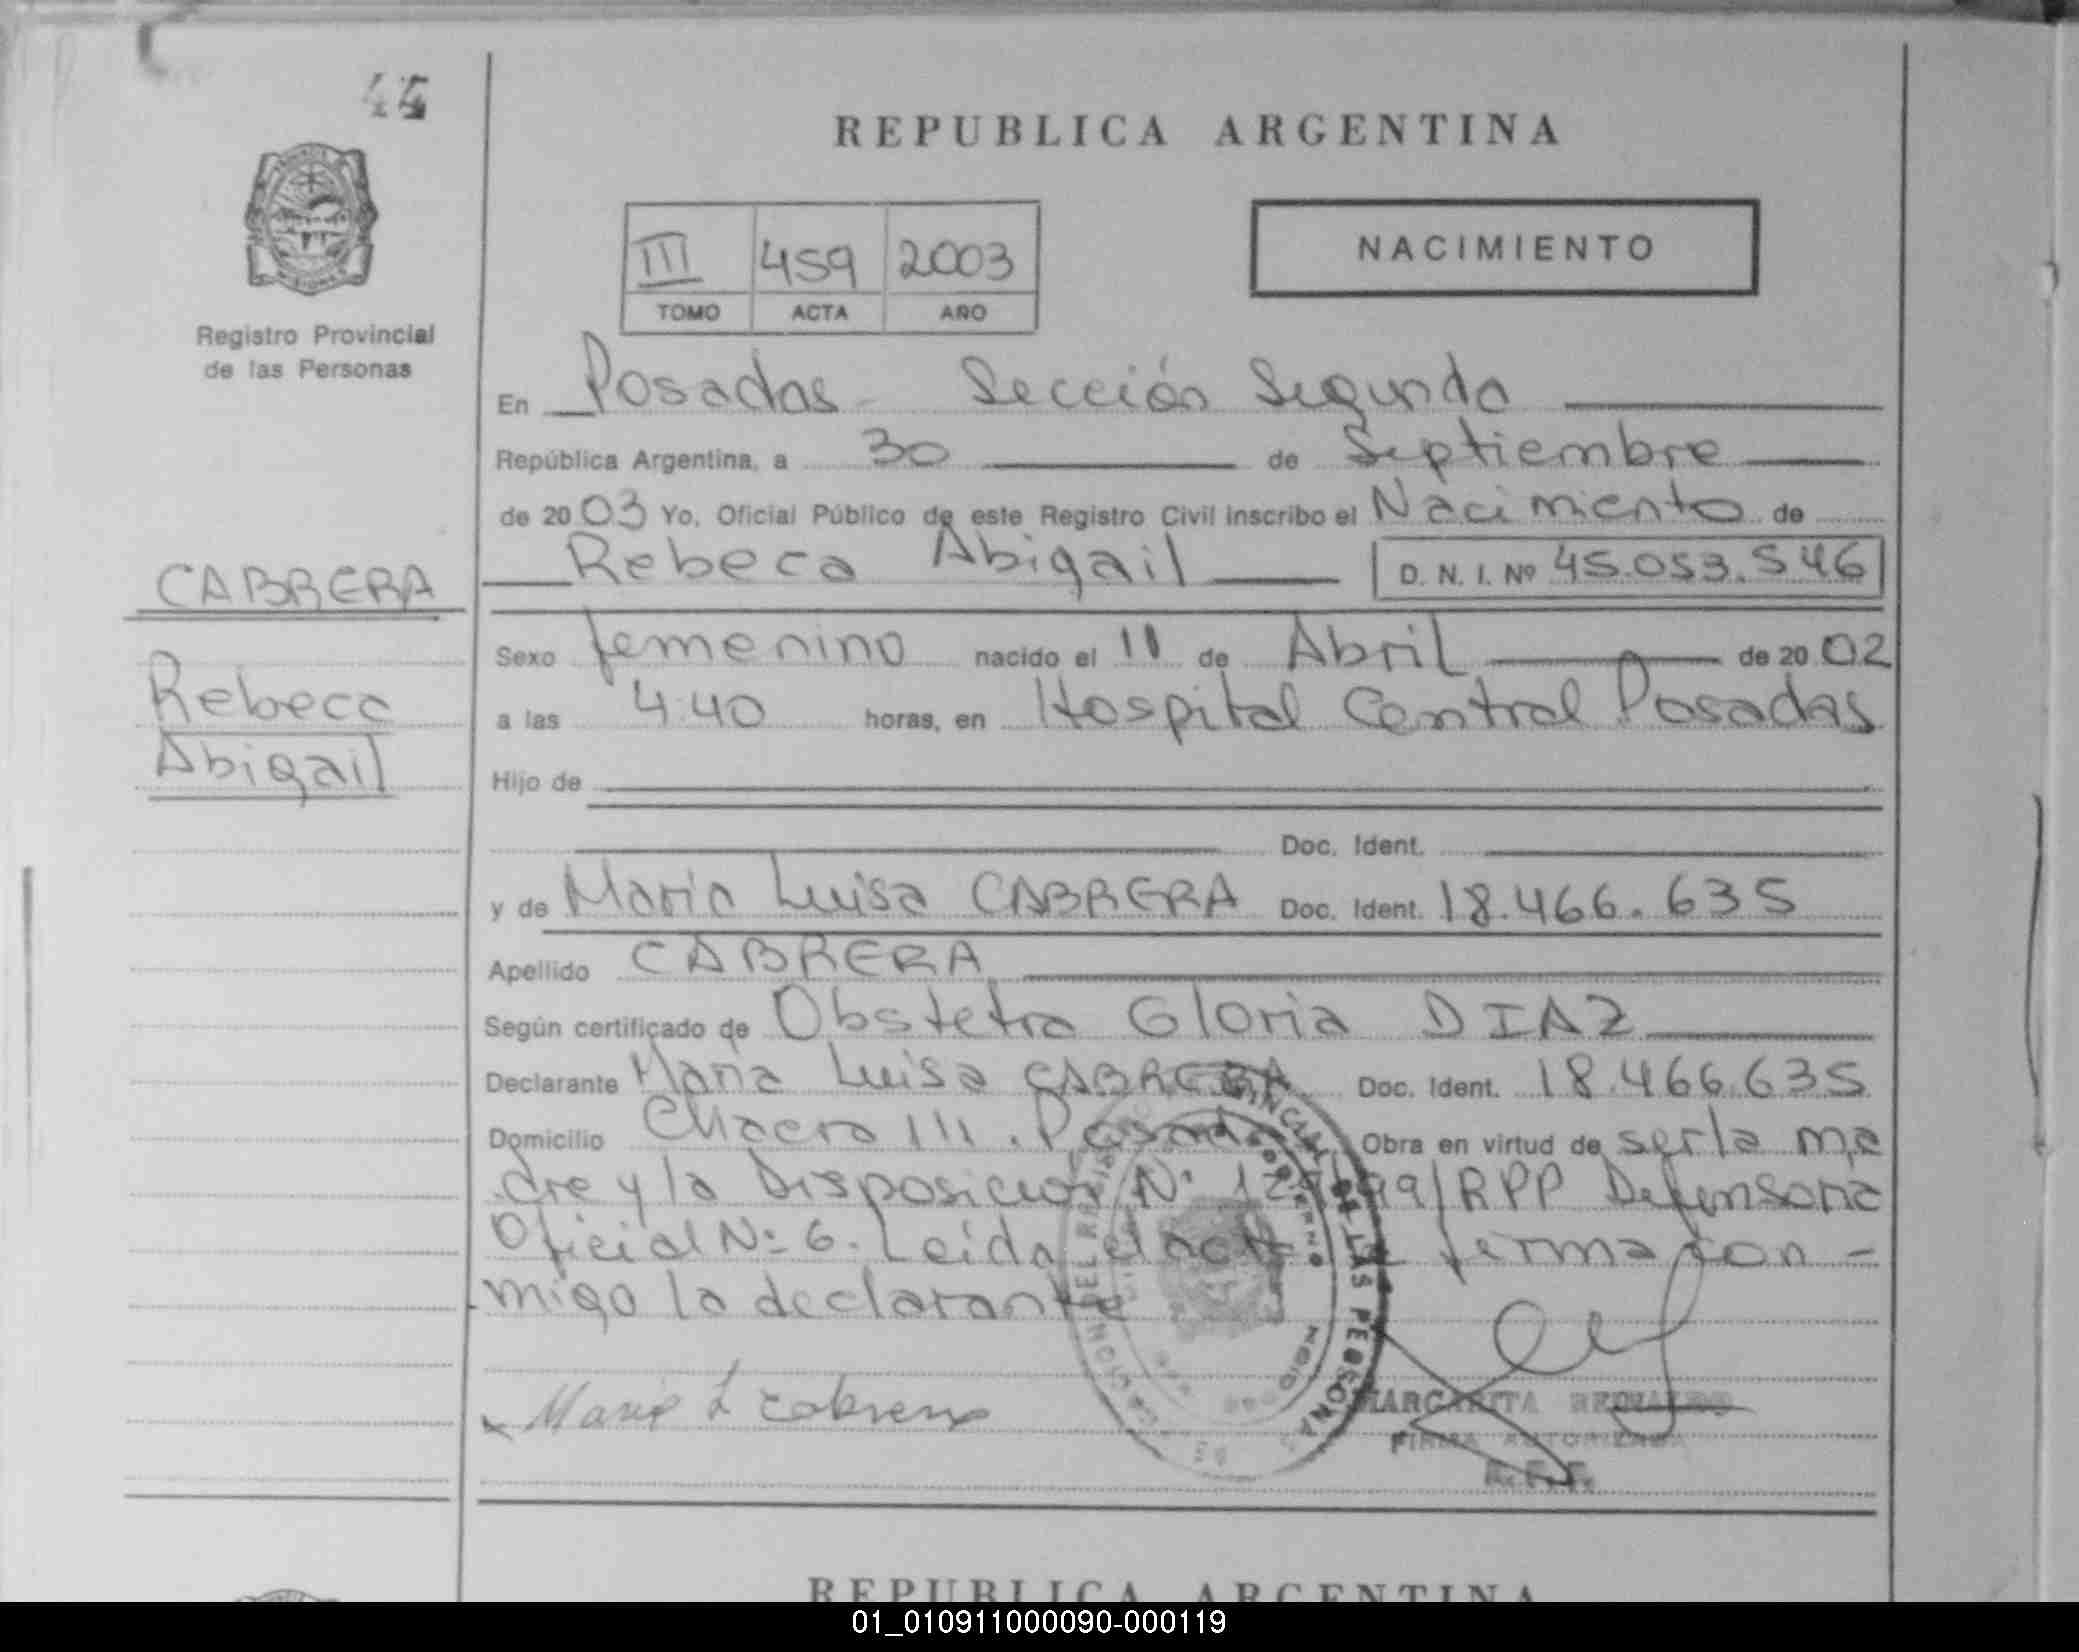 45
REPUBLICA ARGENTINA
III 459 2003
TOMO ACTA AÑO
NACIMIENTO
Registro Provincial
de las Personas
En Posadas - Sección Segunda
República Argentina, a 30 de Septiembre
de 2003 Yo, Oficial Público de este Registro Civil inscribo el Nacimiento de
Rebeca Abigail D. N. I. Nº 45.053.546
CABRERA
Rebeca
Abigail
Sexo femenino nacido el 11 de Abril de 2002
a las 4:40 horas, en Hospital Central Posadas
Hijo de
Doc. Ident.
y de Maria Luisa CABRERA Doc. Ident. 18.466.635
Apellido CABRERA
Según certificado de Obstetra Gloria DIAZ
Declarante Maria Luisa CABRERA Doc. Ident. 18.466.635
Domicilio Chacra 111. Posadas Obra en virtud de ser la ma
dre y la Disposicion Nº /RPP Defensoria
Oficial Nº 6. Leida el acta firma con-
migo la declarante
Maria L Cabrera
MARGARITA
FIRMA AUTORIZADA
REPUBLICA ARGENTINA
01_010911000090-000119